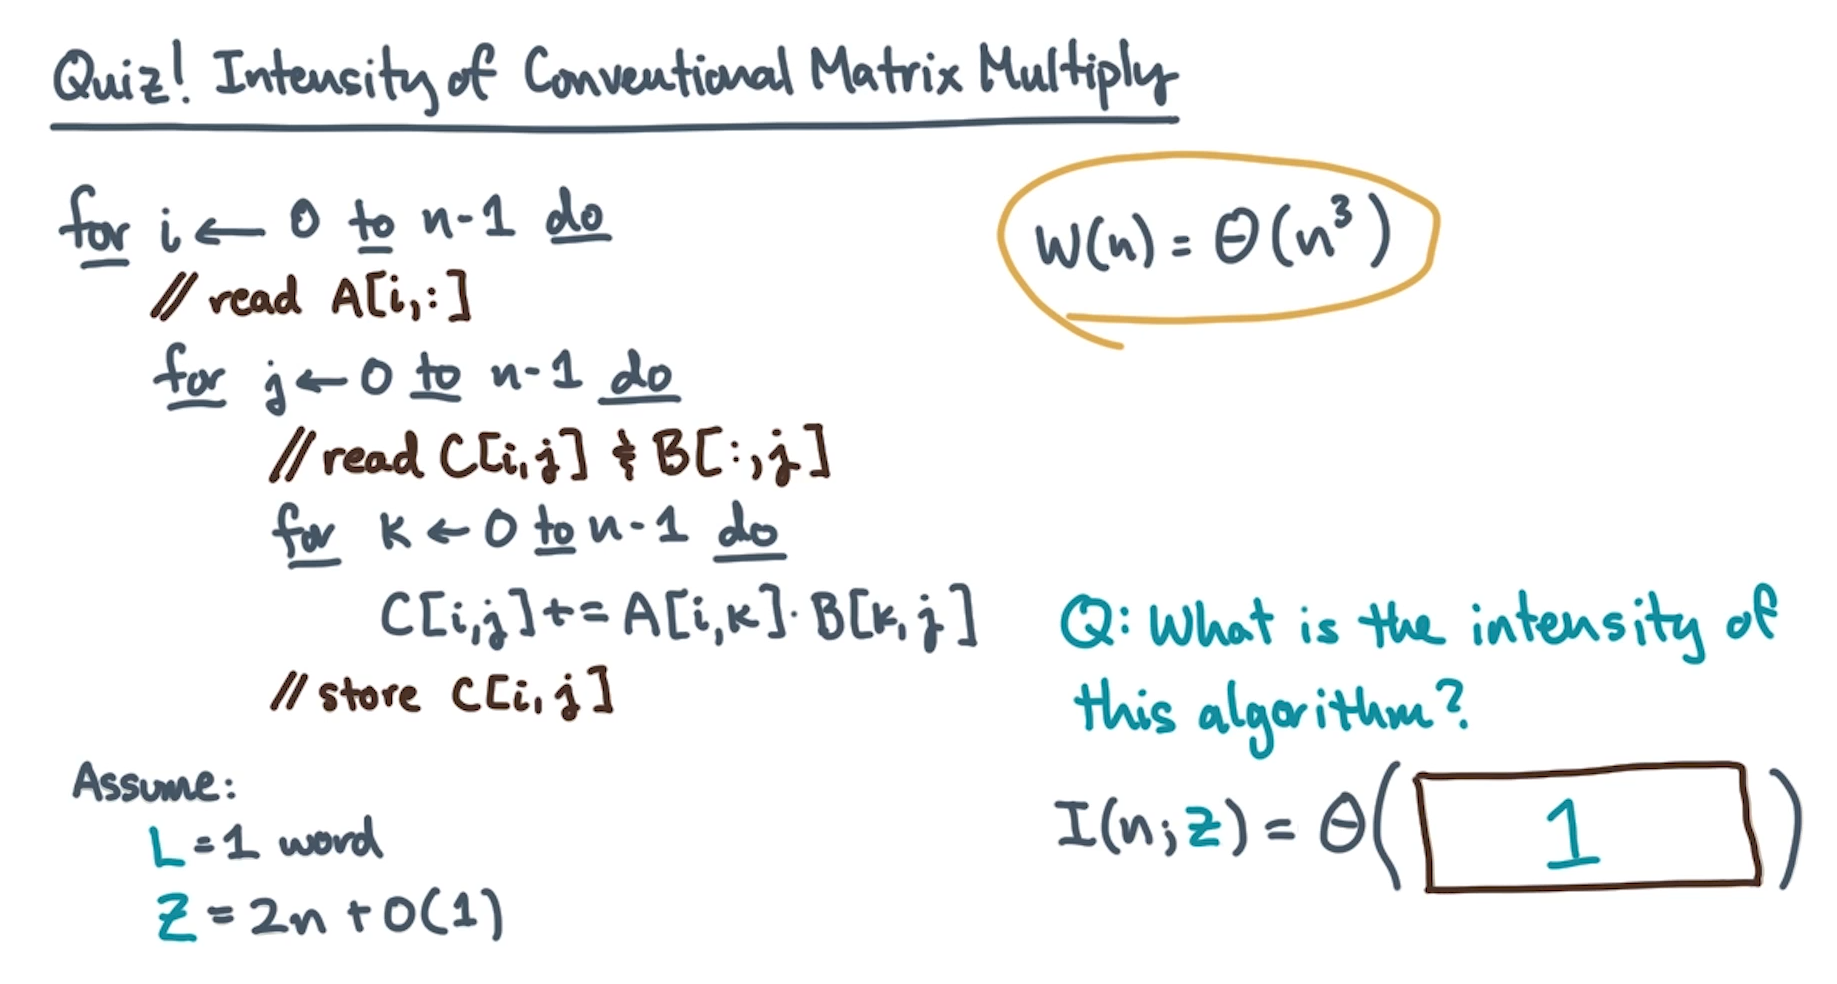 Quiz! Intensity of Conventional Matrix Multiply
for i ← 0 to n-1 do
// read A[i,:]
for j ← 0 to n-1 do
// read C[i,j] & B[:,j]
for k ← 0 to n-1 do
C[i,j] += A[i,k] · B[k,j]
// store C[i,j]
Assume:
L = 1 word
Z = 2n + O(1)
W(n) = Θ(n³)
Q: What is the intensity of
this algorithm?
I(n; Z) = Θ( 1 )